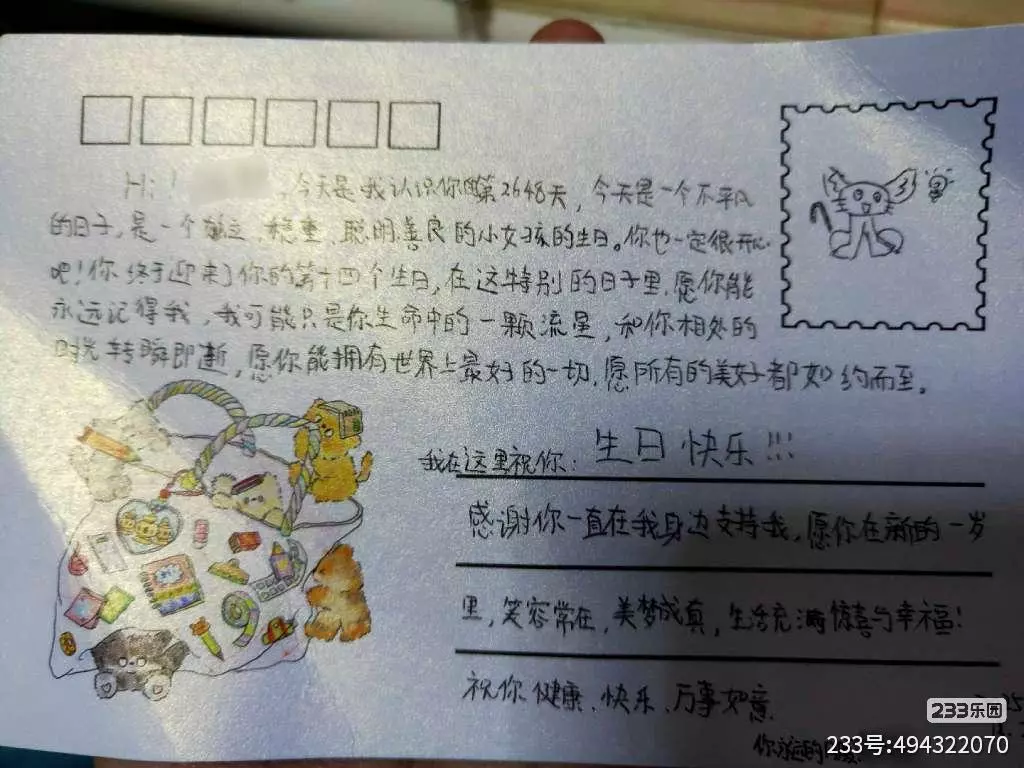 Hi! 今天是我认识你的第2648天，今天是一个不平凡
的日子，是一个独立、稳重、聪明善良的小女孩的生日。你也一定很开心
吧！你终于迎来了你的第十四个生日，在这特别的日子里，愿你能
永远记得我，我可能只是你生命中的一颗流星，和你相处的
时光转瞬即逝，愿你能拥有世界上最好的一切，愿所有的美好都如约而至。
我在这里祝你：生日快乐！！！
感谢你一直在我身边支持我，愿你在新的一岁
里，笑容常在，美梦成真，生活充满惊喜与幸福！
祝你健康、快乐、万事如意
233乐园
233号:494322070